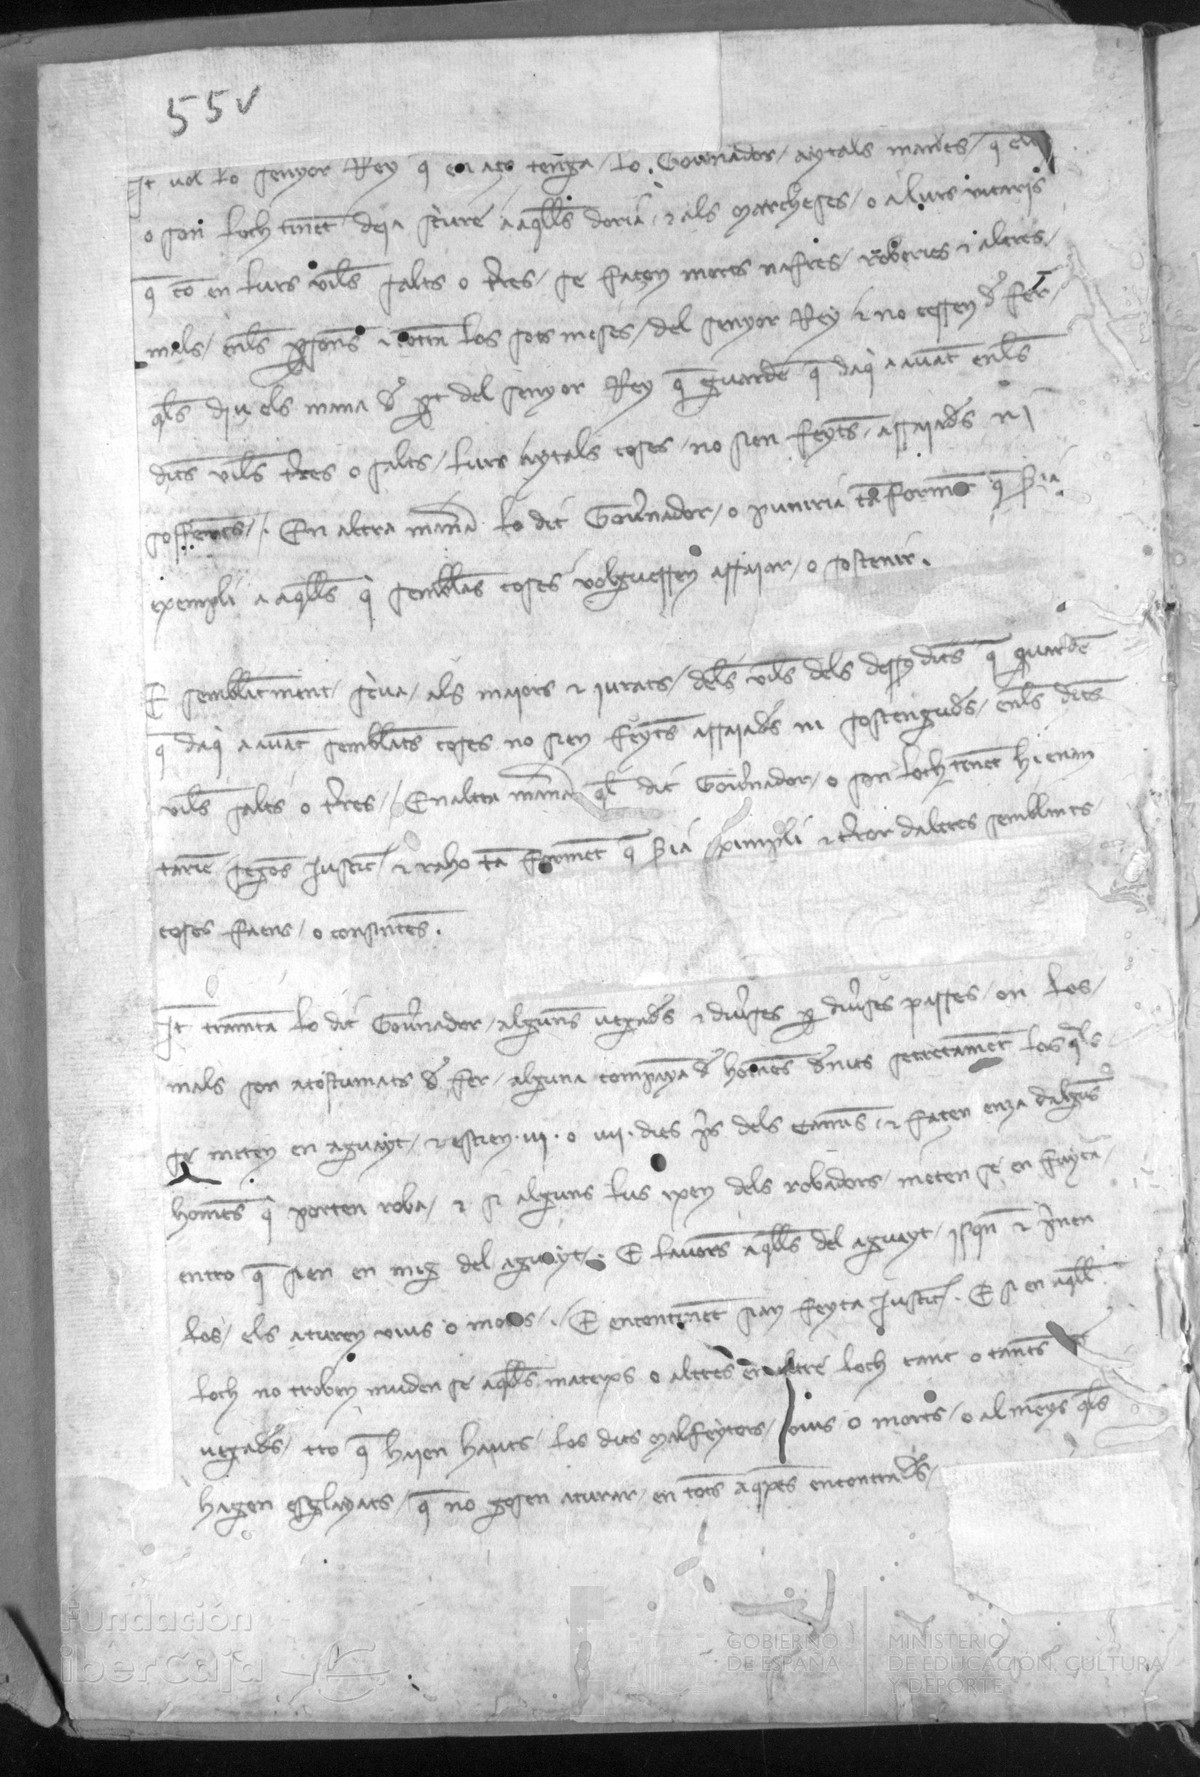 55v
It vol lo senyor Rey q en aço tenga / lo Gouernador / aytals maneres / q ell
o son loch tinent deia scriure a aqlls doria / & als marcheses / o a lurs vicaris
q com en lurs viles / salts o terres / se facen morts nafres / roberies & altres
mals / en les persones & contra los sots meses / del senyor Rey & no cessen de fer /
qls diu els mana de part del senyor Rey q guarden q daqi auant en les
dites viles terres o salts / lurs aytals coses / no sien feytes / assaiades ni
sofferts / . En altra manera lo dit Gouernador / o puniria tan forment q sia
exempli a aqlls qi semblans coses volguessen assaiar / o sostenir .
E semblantment / scriua / als maiors & iurats / deles viles dels dessus dits q guarden
q daqi auant semblants coses no sien feytes assaiades ni sostengudes / en les dites
viles salts o terres / / En altra manera ql dit Gouernador / o son loch tenent hi enan
tarien segons Justicia & raho tan forment q sia eximpli & terror daltres semblants
coses faens / o consintens .
It trameta lo dit Gouernador / algunes vegades & diuerses per diuerses passes / on los /
mals son acostumats de fer / alguna companya de homens de nits secretament los qls
se meten en aguayt / & estien . vi . o vii . dies pres dels Camins / & facen enza dalguns
homens qi porten roba / & si alguns lus ixen dels robadors / meten se en fuyta /
entro q sien en mig del aguayt . E lauors aqlls del aguayt / isqen & prenen
los / els aturen vius o morts . / E encontinent sian feyta Justicia . E si en aqll
loch no troben muden se aqlls mateyxs o altres en altre loch tant o tantes
vegades / tro q haien hauts / los dits malfeytors / vius o morts / o al meyns qls
hagen esglayats / q no gosen aturar / en totes aqestes encontrades /
Fundación
iberCaja
GOBIERNO
DE ESPAÑA
MINISTERIO
DE EDUCACIÓN, CULTURA
Y DEPORTE